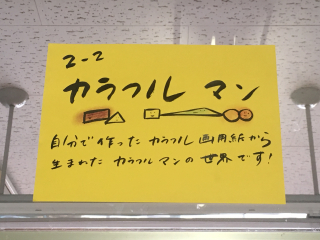 2-2
カラフル マン
自分で作ったカラフル画用紙から
生まれたカラフルマンの世界です!